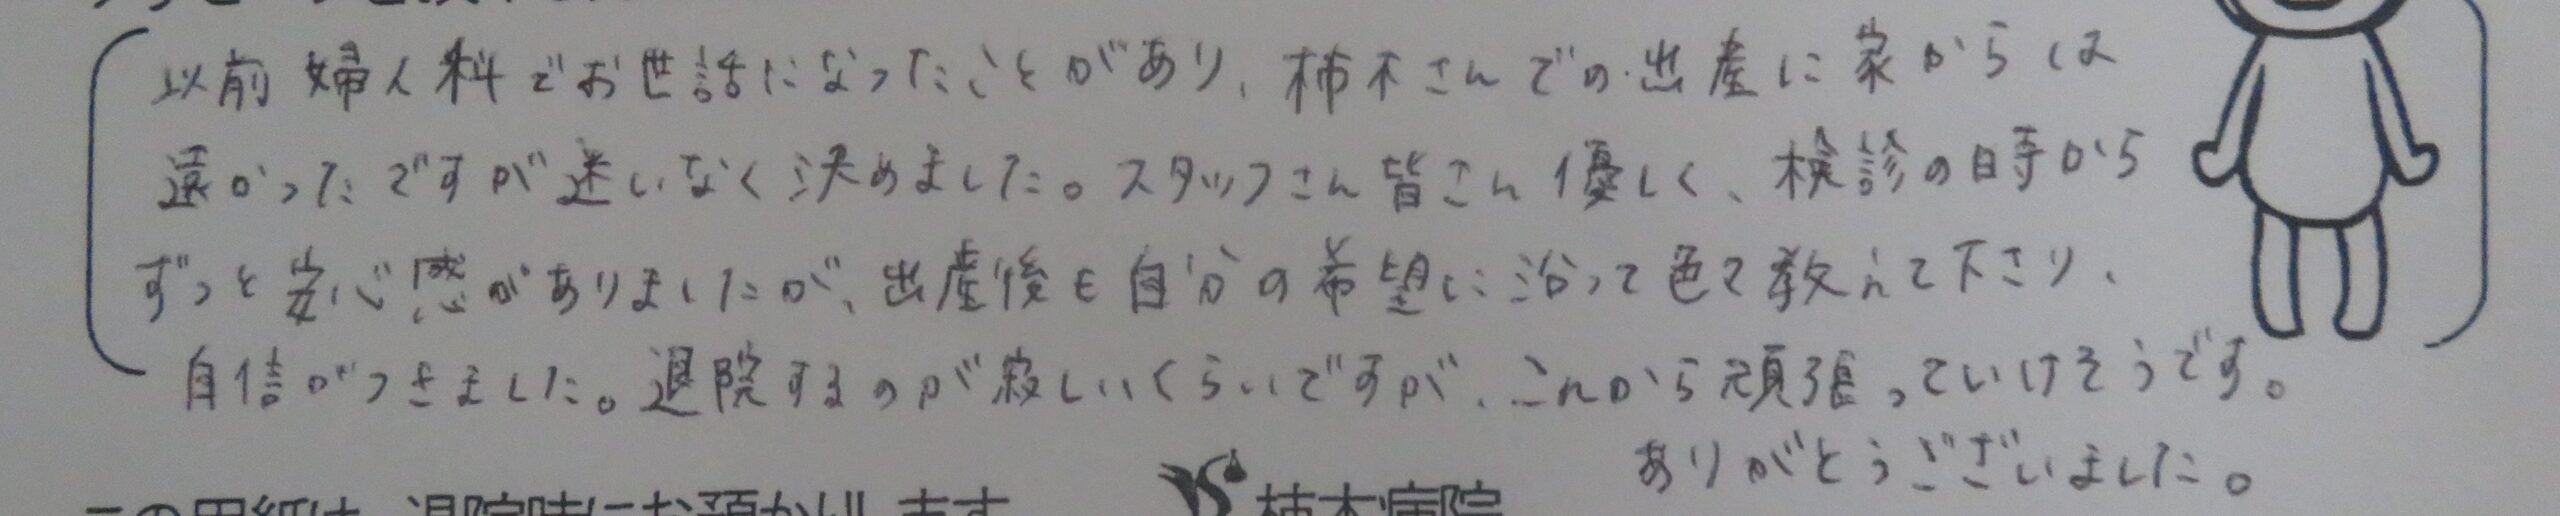 以前婦人科でお世話になったことがあり、柿木さんでの出産に家からは
遠かったですが迷いなく決めました。スタッフさん皆さん優しく、検診の時から
ずっと安心感がありましたが、出産後も自分の希望に沿って色々教えて下さり、
自信がつきました。退院するのが寂しいくらいですが、これから頑張っていけそうです。
ありがとうございました。
この用紙は、退院時にお預かりします
柿木病院